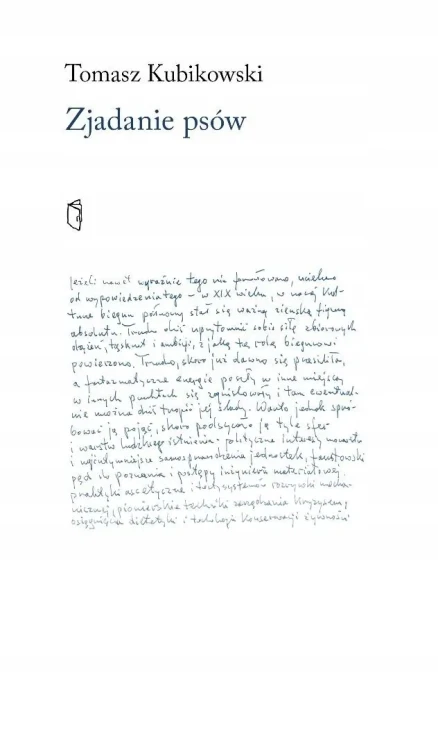 Tomasz Kubikowski
Zjadanie psów
Jeżeli nawet wyraźnie tego nie formułowano,
od wypowiedzenia tego – w XIX wieku, w naszej kul-
turze biegun północny stał się ważną ziemską figurą
absolutu. Trudno dziś uprzytomnić sobie siłę zbiorowych
dążeń, tęsknot i ambicji, z jaką tę rolę biegunowi
powierzono. Trudno, skoro już dawno się przesiliła,
a fantazmatyczne energie poszły w inne miejsca,
w innych punktach się zogniskowały i tam ewentual-
nie można dziś tropić jej ślady. Warto jednak spró-
bować ją pojąć, skoro podsycało ją tyle sfer
i warstw ludzkiego istnienia: polityczne interesy mocarstw
i najintymniejsze samosprawdzenia jednostek, faustowski
pęd do poznania i postępy inżynierii materiałowej,
praktyki ascetyczne i rozrywki
pionierskie techniki zarządzania kryzysem,
osiągnięcia dietetyki i technologii konserwacji żywności